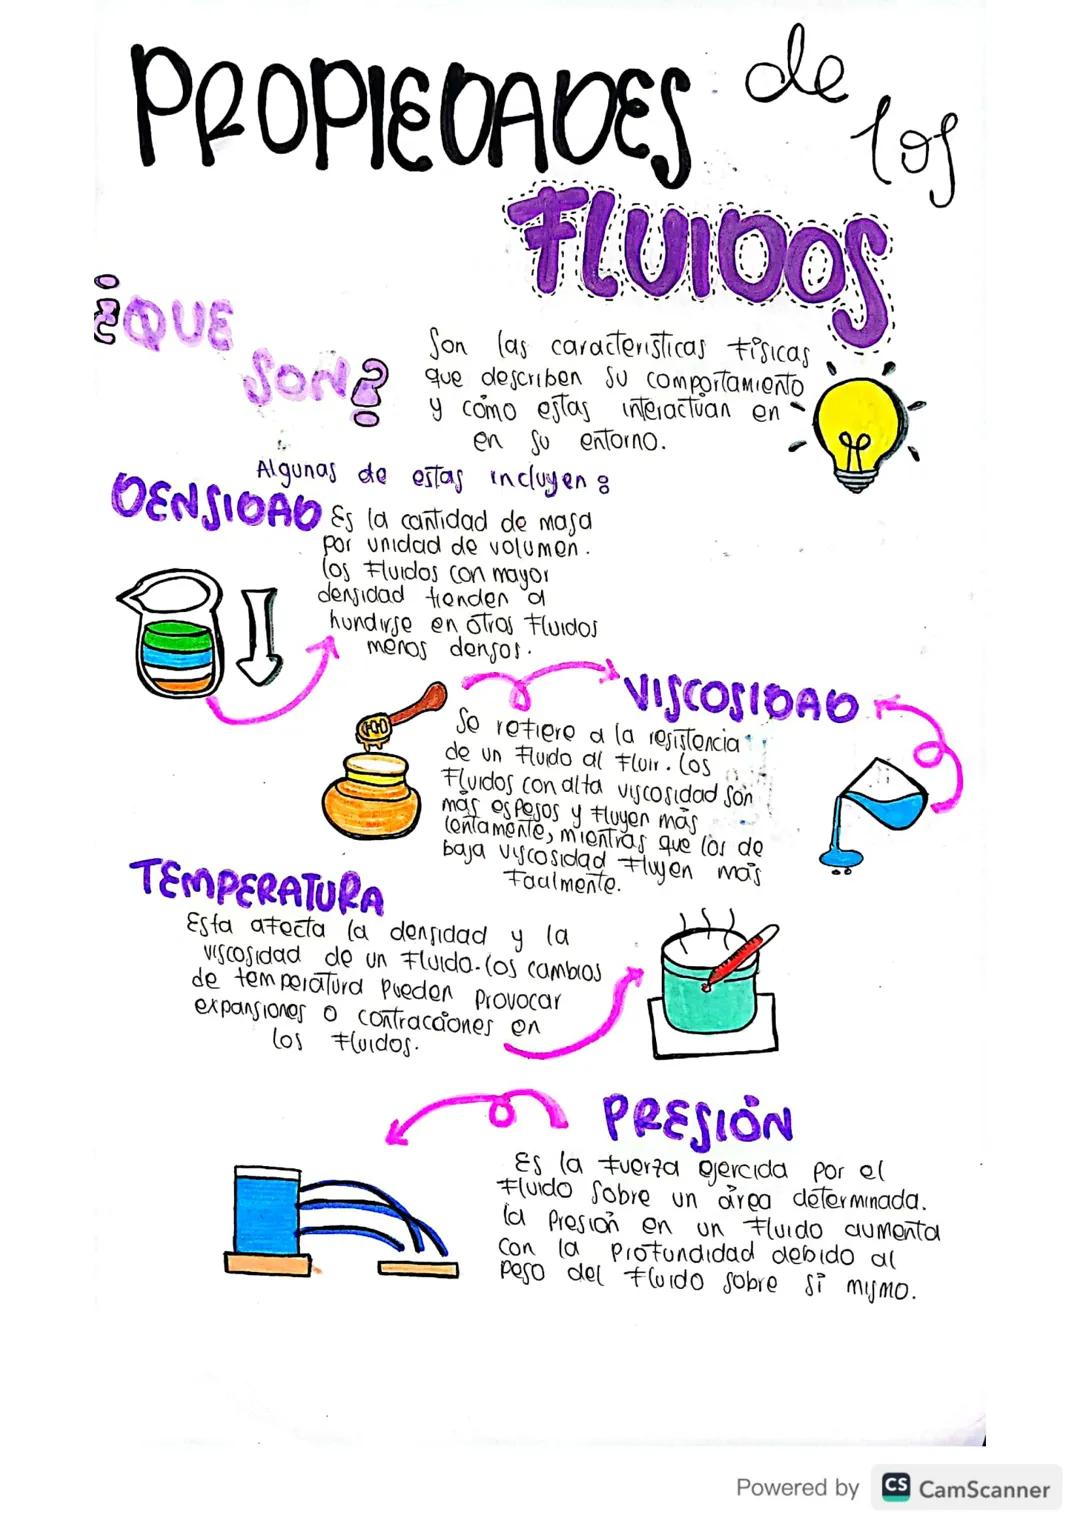 PROPIEDADES de los
FLUIDOS
¿QUE
SON?
Son las caracteristicas físicas
que describen su comportamiento
y cómo estas interactúan en
en su entorno.
Algunas de estas incluyen:
DENSIDAD
Es la cantidad de masa
por unidad de volumen.
los Fluidos con mayor
densidad tienden a
hundirse en otros Fluidos
menos densos.
VISCOSIDAD
Se refiere a la resistencia
de un Fluido al Fluir. los
Fluidos con alta viscosidad son
más espesos y fluyen más
lentamente, mientras que los de
baja viscosidad Fluyen más
Facilmente.
TEMPERATURA
Esta afecta la densidad y la
viscosidad de un Fluido. los cambios
de temperatura pueden provocar
expansiones o contracciones en
los Fluidos.
PRESIÓN
Es la fuerza ejercida por el
Fluido sobre un área determinada.
la Presión en un Fluido aumenta
con la profundidad debido al
peso del Fluido sobre sí mismo.
Powered by CS CamScanner